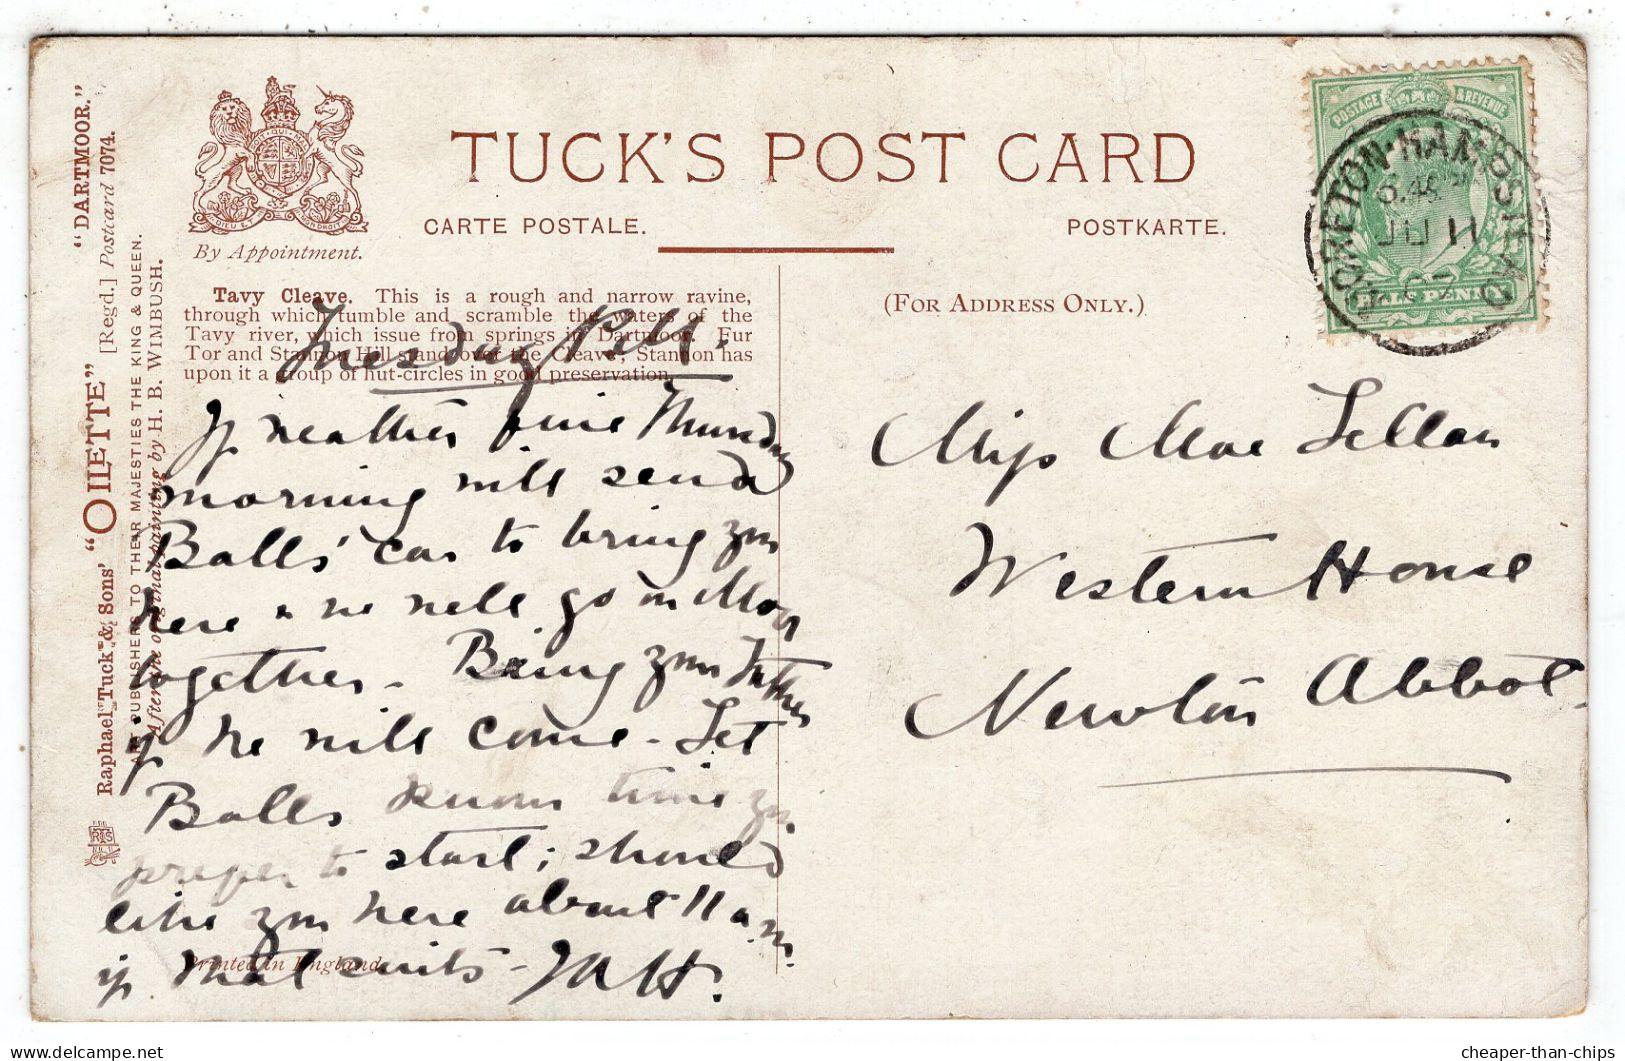 "DARTMOOR."
[Regd.] Postcard 7074.
Raphael Tuck & Sons' "OILETTE"
ART PUBLISHERS TO THEIR MAJESTIES THE KING & QUEEN.
After the original painting by H. B. WIMBUSH.
By Appointment.
TUCK'S POST CARD
CARTE POSTALE.
POSTKARTE.
Tavy Cleave. This is a rough and narrow ravine,
through which tumble and scramble the waters of the
Tavy river, which issue from springs in Dartmoor. Fur
Tor and Stannon Hill stand over the Cleave; Stannon has
upon it a group of hut-circles in good preservation.
(FOR ADDRESS ONLY.)
POSTAGE & REVENUE
HALF PENNY
MORETON-HAMPSTEAD
JU 11
07
Tuesday
If weather fine Thursday
morning will send
Balls' car to bring you
here & we will go on Moor
together. Bring your Father
if he will come - Let
Balls know time you
prefer to start; should
like you here about 11 a.m.
if that suits -
Printed in England.
Miss Mac Lellan
Western House
Newton Abbot.
delcampe.net
cheaper-than-chips